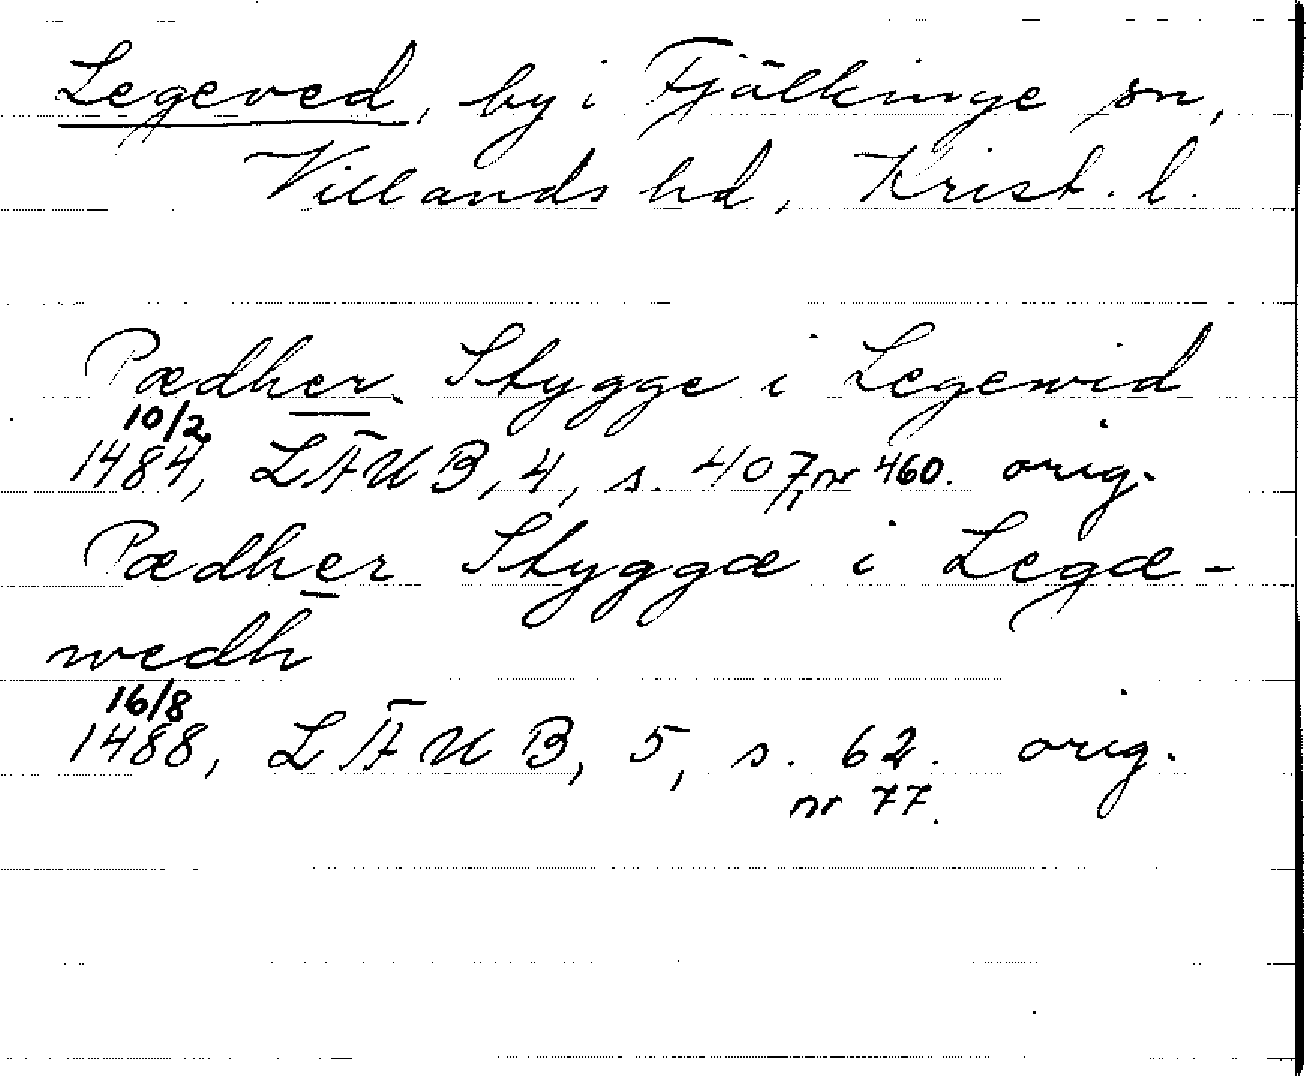 Legeved, by i Fjälkinge sn,
Villands hd, Krist. l.
Pædher Stygge i Legewid
10/2
1484, LÄUB, 4, s. 407, nr 460. orig.
Pædher Styggæ i Legæ-
wedh
16/8
1488, LÄUB, 5, s. 62. orig.
nr 77.